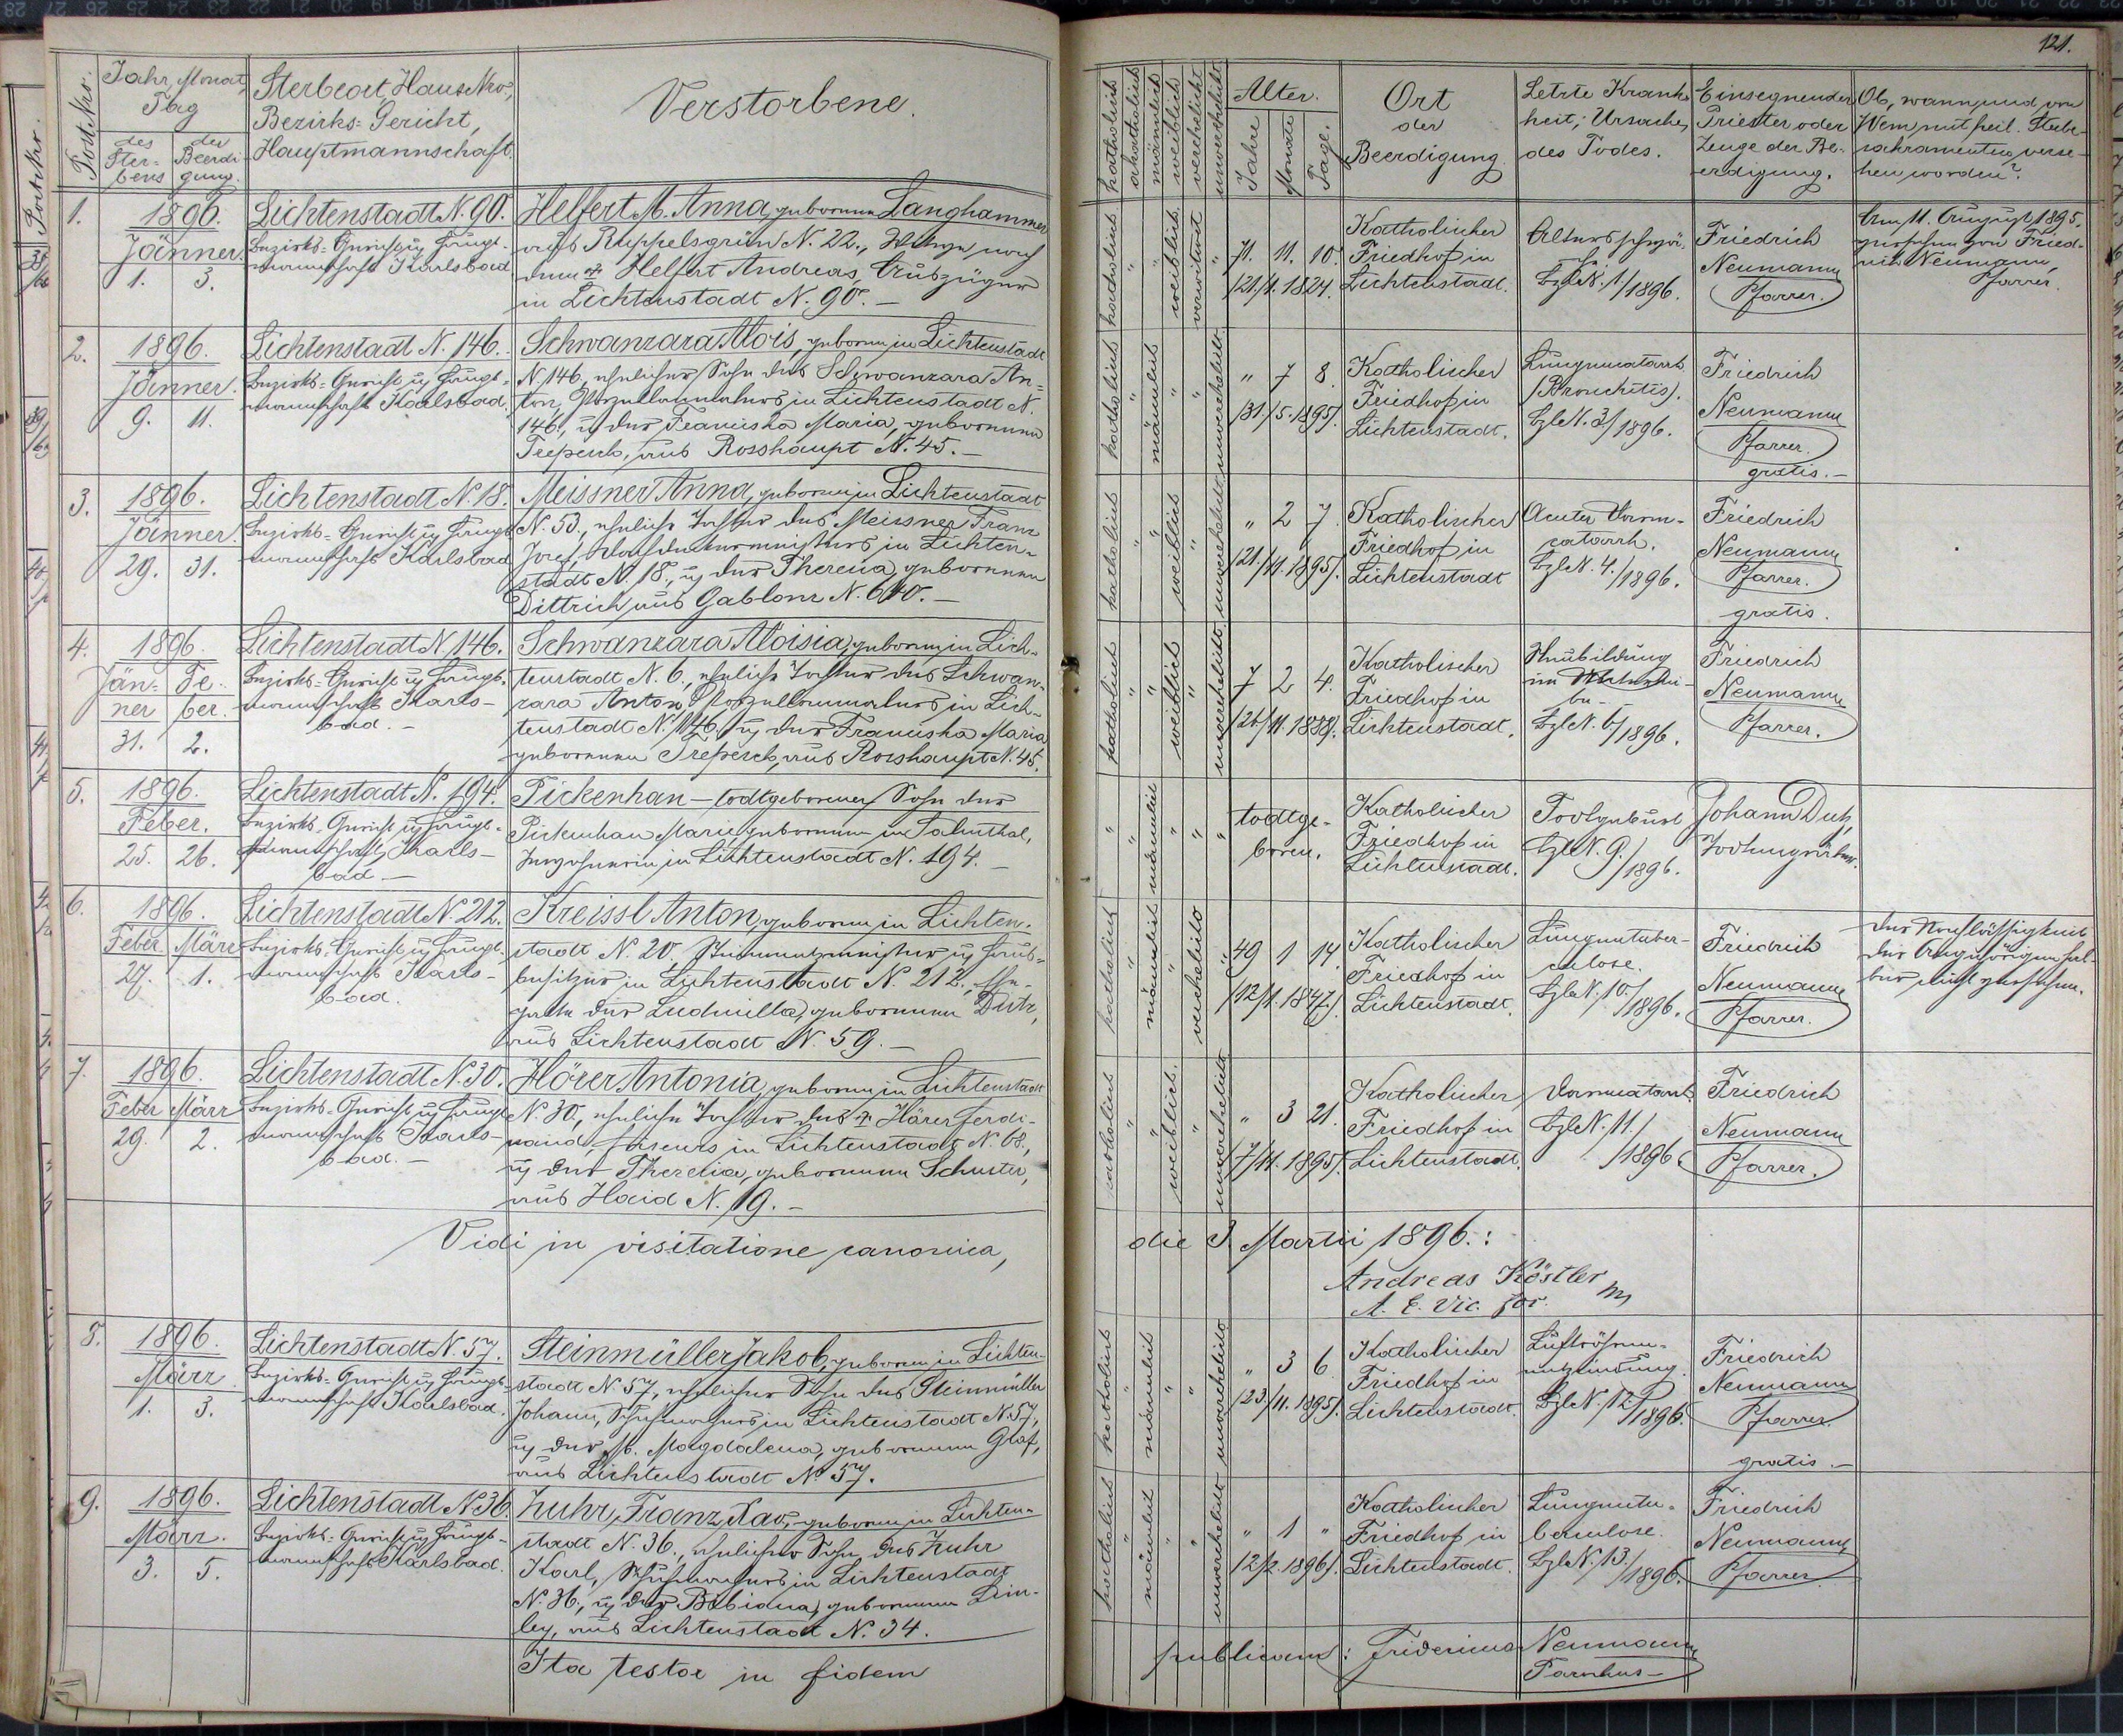 121.
Post-Nro.
Jahr, Monat,
Tag
des Sterbens
der Beerdigung.
Sterbeort, Haus-Nro.,
Bezirks-Gericht,
Hauptmannschaft.
Verstorbene.
katholisch
akatholisch
männlich
weiblich
verehelicht
unverehelicht
Alter.
Jahre
Monate
Tage.
Ort
der
Beerdigung.
Letzte Krank-
heit, Ursache
des Todes.
Einsegnender
Priester oder
Zeuge der Be-
erdigung.
Ob, wann und von
Wem mit heil. Sterbe-
sakramenten verse-
hen worden?
1.
1896.
Jänner.
1. 3.
Lichtenstadt N. 90.
Bezirks-Gericht u. Haupt-
mannschaft Karlsbad
Helfert M. Anna, geborene Langhammer
aus Ruppelsgrün N. 22., Witwe nach
dem † Helfert Andreas, Auszügler
in Lichtenstadt N. 90. –
katholisch " " weiblich verwitwet "
71. 11. 10.
/21./1. 1824.
Katholischer
Friedhof in
Lichtenstadt.
Altersschwä-
che.
Bzl. N. 1/1896.
Friedrich
Neumann
Pfarrer.
Am 11. August 1895.
versehen von Fried-
rich Neumann,
Pfarrer.
2.
1896.
Jänner.
9. 11.
Lichtenstadt N. 146.
Bezirks-Gericht u. Haupt-
mannschaft Karlsbad.
Schwanzara Alois, geboren in Lichtenstadt
N. 146, ehelicher Sohn des Schwanzara An-
ton, Porzellanmalers in Lichtenstadt N.
146., u. der Franziska Maria, geborenen
Trepesch, aus Rosshaupt N. 45. –
katholisch " männlich " " unverehelicht
" 7 8.
/31./5. 1895/.
Katholischer
Friedhof in
Lichtenstadt.
Lungencatarrh
/Bronchitis/.
Bzl. N. 3/1896.
Friedrich
Neumann
Pfarrer.
gratis. –
3.
1896.
Jänner.
29. 31.
Lichtenstadt N. 18.
Bezirks-Gericht u. Haupt-
mannschaft Karlsbad
Meissner Anna, geboren in Lichtenstadt
N. 53., eheliche Tochter des Meissner Franz
Josef, in Lichten-
stadt N. 18., u. der Theresia, geborenen
Dittrich, aus Gablonz N. –
katholisch " " weiblich " unverehelicht
" 2 7.
/21./11. 1895/.
Katholischer
Friedhof in
Lichtenstadt
Acuter Darm-
catarrh.
Bzl. N. 4./1896.
Friedrich
Neumann
Pfarrer.
gratis.
4.
1896.
Jän- Fe-
ner ber.
31. 2.
Lichtenstadt N. 146.
Bezirks-Gericht u. Haupt-
mannschaft Karls-
bad. –
Schwanzara Aloisia, geboren in Lich-
tenstadt N. 6., eheliche Tochter des Schwan-
zara Anton, Porzellanmalers in Lich-
tenstadt N. 146., u. der Franziska Maria
geborenen Trepesch, aus Rosshaupt N. 45.
katholisch " " weiblich " unverehelicht
7 2 4.
/26./11. 1888/.
Katholischer
Friedhof in
Lichtenstadt.
Neubildung
im
Bzl. N. 6/1896.
Friedrich
Neumann
Pfarrer.
5.
1896.
Feber.
25. 26.
Lichtenstadt N. 194.
Bezirks-Gericht u. Haupt-
mannschaft Karls-
bad. –
Pickenhan – todtgeborener Sohn der
Pickenhan Marie, geborenen in
Inwohnerin in Lichtenstadt N. 194. –
" " männlich " " "
todtge-
boren.
Katholischer
Friedhof in
Lichtenstadt.
Todtgeburt
Bzl. N. 9./1896.
Johann Dutz,
Todtengräber.
6.
1896.
Feber März
27. 1.
Lichtenstadt N. 212.
Bezirks-Gericht u. Haupt-
mannschaft Karls-
bad.
Kreissl Anton, geboren in Lichten-
stadt N. 20. u. Haus-
besitzer in Lichtenstadt N. 212., Ehe-
gatte der Ludmilla, geborenen Dutz,
aus Lichtenstadt N. 59. –
katholisch " männlich " verehelicht "
49 1 14
/12./1. 1847/.
Katholischer
Friedhof in
Lichtenstadt.
Lungentuber-
culose.
Bzl. N. 10./1896.
Friedrich
Neumann
Pfarrer.
Der Nachlässigkeit
der Angehörigen hal-
ber nicht versehen.
7.
1896.
Feber März
29. 2.
Lichtenstadt N. 30.
Bezirks-Gericht u. Haupt-
mannschaft Karls-
bad. –
Hörer Antonia, geboren in Lichtenstadt
N. 30., eheliche Tochter des † Hörer Ferdi-
nand, Friseurs in Lichtenstadt N. 68.,
u. der Theresia, geborenen Schuster,
aus Haid N. 19. –
katholisch " " weiblich " unverehelicht
" 3 21.
/7./11. 1895/.
Katholischer
Friedhof in
Lichtenstadt.
Darmcatarrh.
Bzl. N. 11./1896.
Friedrich
Neumann
Pfarrer.
Vidi in visitatione canonica,
die 3. Martii 1896.:
Andreas Köstler
A. E. Vic. For.
8.
1896.
März
1. 3.
Lichtenstadt N. 57.
Bezirks-Gericht u. Haupt-
mannschaft Karlsbad.
Steinmüller Jakob, geboren in Lichten-
stadt N. 57., ehelicher Sohn des Steinmüller
Johann, Schuhmachers in Lichtenstadt N. 57.,
u. der M. Magdalena, geborenen Graf,
aus Lichtenstadt N. 57.
katholisch " männlich " " unverehelicht
" 3 6
/23./11. 1895/.
Katholischer
Friedhof in
Lichtenstadt.
Luftröhren-
entzündung.
Bzl. N. 12./1896.
Friedrich
Neumann
Pfarrer.
gratis. –
9.
1896.
März.
3. 5.
Lichtenstadt N. 36.
Bezirks-Gericht u. Haupt-
mannschaft Karlsbad.
Zuhr, Franz Xav., geboren in Lichten-
stadt N. 36., ehelicher Sohn des Zuhr
Karl, Schuhmachers in Lichtenstadt
N. 36., u. der Bibiana, geborenen Lin-
ley, aus Lichtenstadt N. 34.
katholisch " männlich " " unverehelicht
" 1 "
/2./2. 1896/.
Katholischer
Friedhof in
Lichtenstadt.
Lungentu-
berculose.
Bzl. N. 13./1896.
Friedrich
Neumann
Pfarrer.
Ita testor in fidem
publicam: Fridericus Neumann
Parochus –